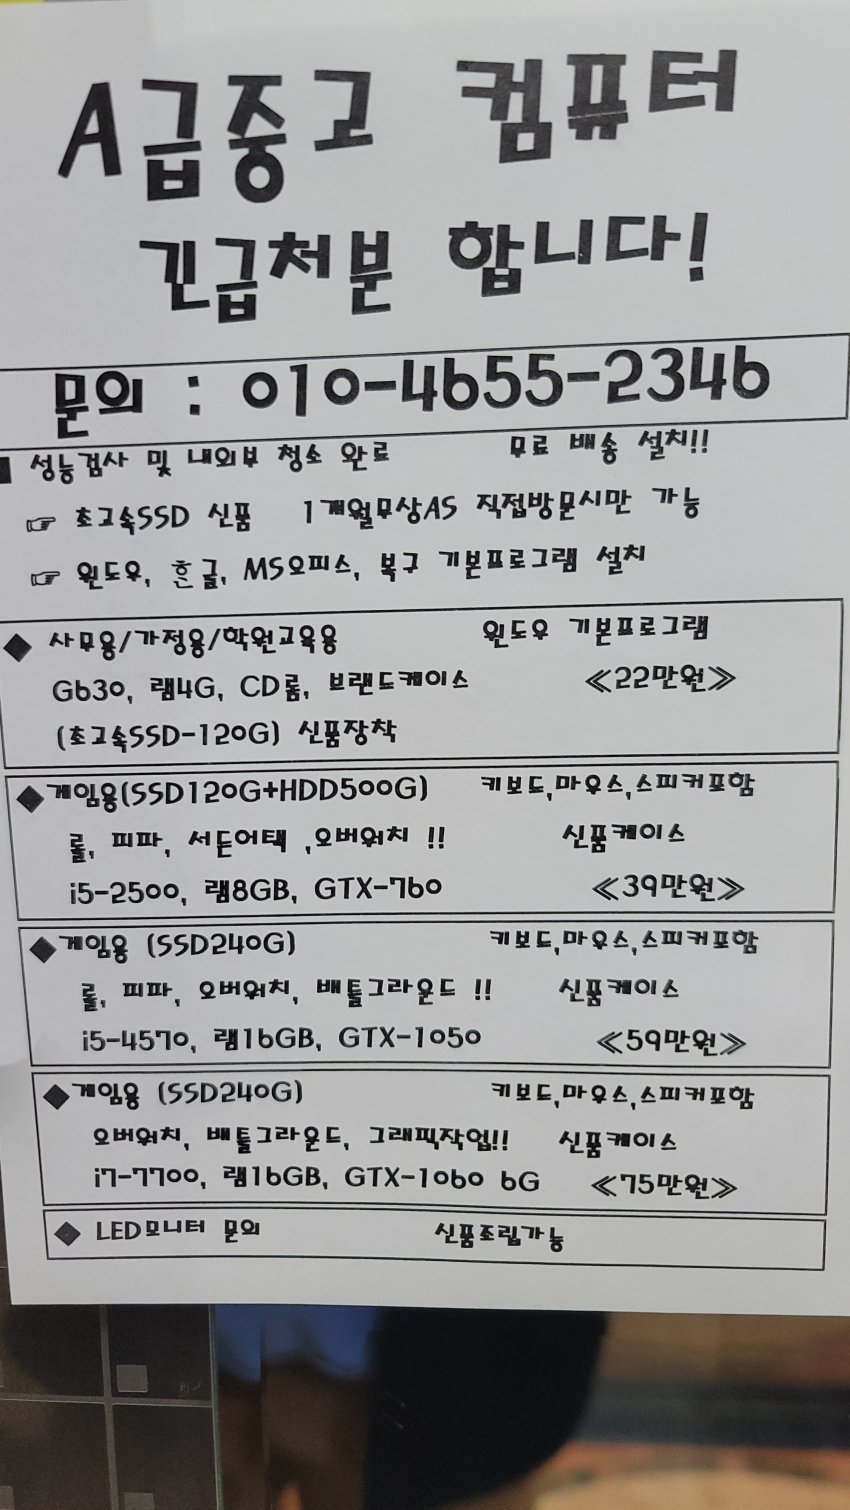 A급중고 컴퓨터
긴급처분 합니다!
문의 : 010-4655-2346
■ 성능검사 및 내외부 청소 완료 무료 배송 설치!!
☞ 초고속SSD 신품 1개월무상AS 직접방문시만 가능
☞ 윈도우, 흔글, MS오피스, 복구 기본프로그램 설치
◆ 사무용/가정용/학원교육용 윈도우 기본프로그램
G630, 램4G, CD롬, 브랜드케이스 ≪22만원≫
(초고속SSD-120G) 신품장착
◆게임용(SSD120G+HDD500G) 키보드,마우스,스피커포함
롤, 피파, 서든어택 ,오버워치 !! 신품케이스
i5-2500, 램8GB, GTX-760 ≪39만원≫
◆게임용 (SSD240G) 키보드,마우스,스피커포함
롤, 피파, 오버워치, 배틀그라운드 !! 신품케이스
i5-4570, 램16GB, GTX-1050 ≪59만원≫
◆게임용 (SSD240G) 키보드,마우스,스피커포함
오버워치, 배틀그라운드, 그래픽작업!! 신품케이스
i7-7700, 램16GB, GTX-1060 6G ≪75만원≫
◆ LED모니터 문의 신품조립가능